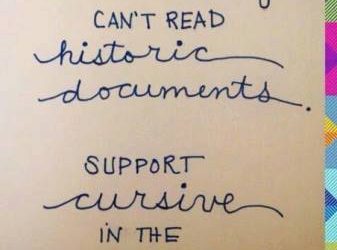 CAN'T READ
historic
documents.
SUPPORT
cursive
IN THE